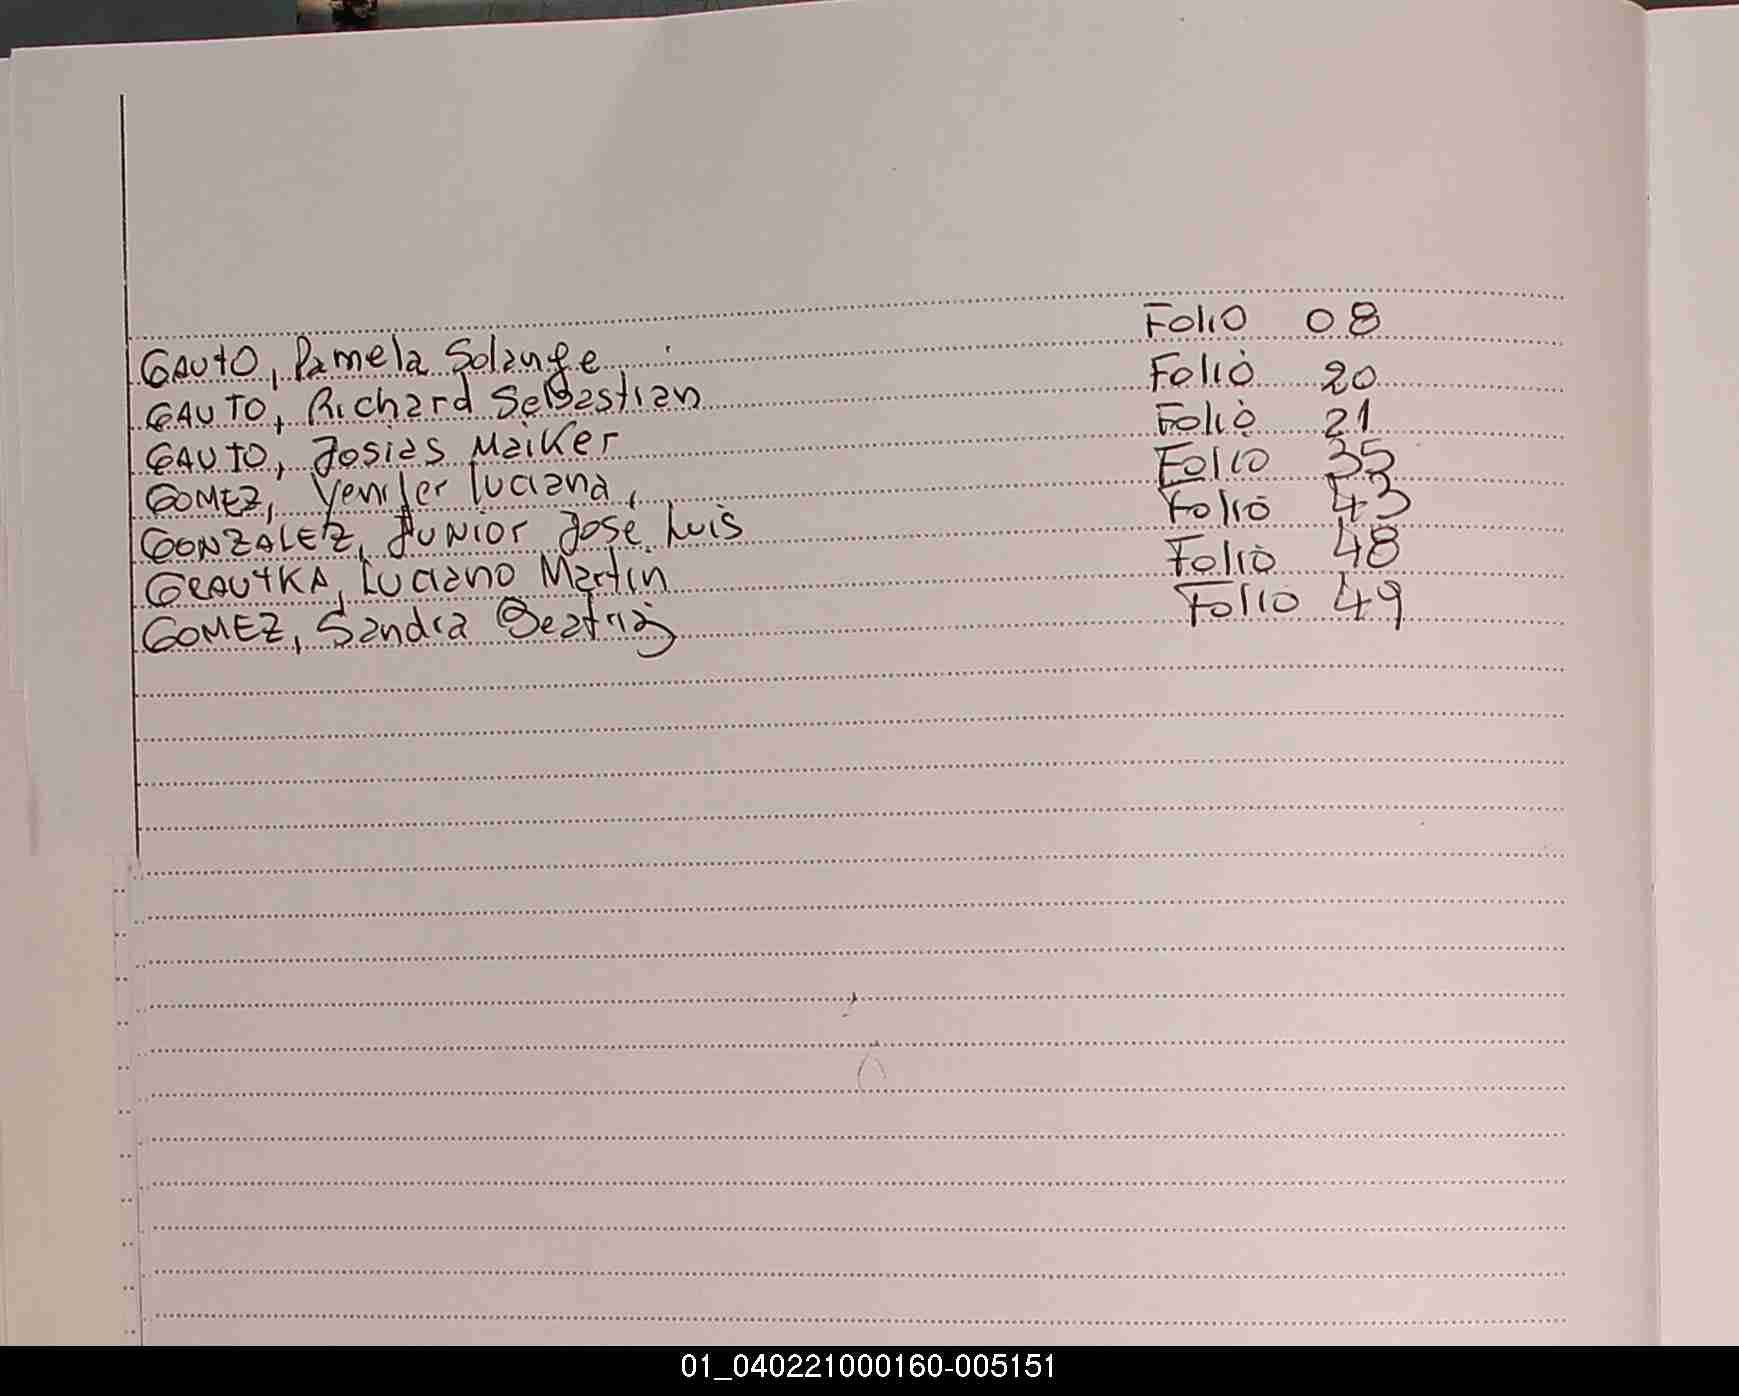 GAUTO, Pamela Solange Folio 08
GAUTO, Richard Sebastian Folio 20
GAUTO, Josias Maiker Folio 21
GOMEZ, Yenifer Luciana, Folio 35
GONZALEZ, Junior José Luis Folio 43
GRAUTKA, Luciano Martin Folio 48
GOMEZ, Sandra Beatriz Folio 49
01_040221000160-005151